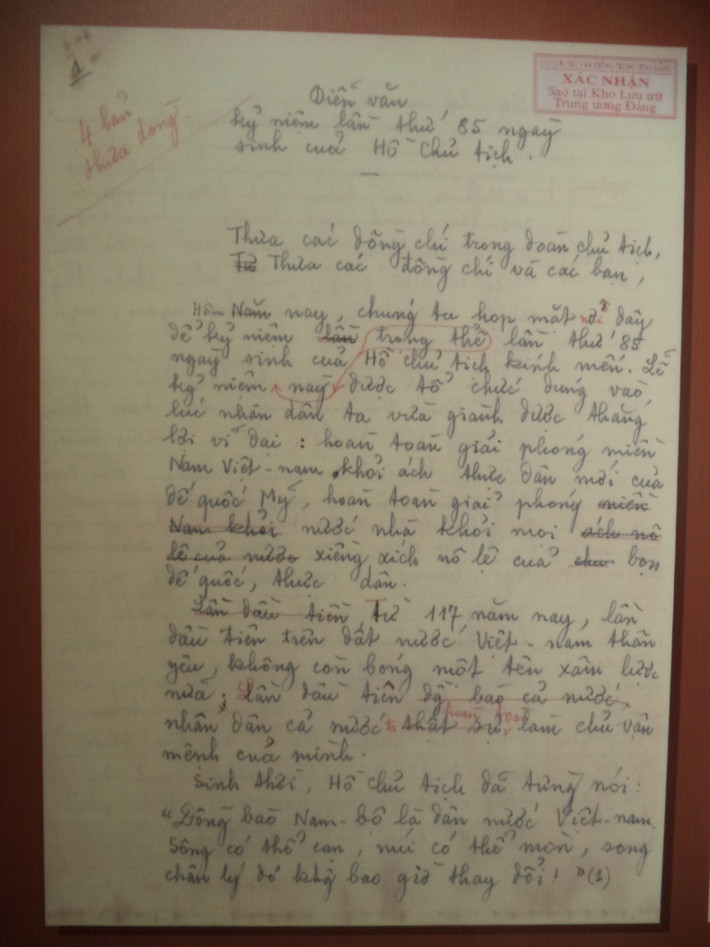 1
4 bản
thừa dòng.
CỤC LƯU TRỮ VĂN PHÒNG TRUNG ƯƠNG ĐẢNG
XÁC NHẬN
Sao tại Kho Lưu trữ
Trung ương Đảng
Diễn văn
kỷ niệm lần thứ 85 ngày
sinh của Hồ Chủ tịch.
Thưa các đồng chí trong đoàn chủ tịch,
Thưa các đồng chí và các bạn,
Hôm Năm nay, chúng ta họp mặt ở đây
để kỷ niệm lần trọng thể lần thứ 85
ngày sinh của Hồ chủ tịch kính mến. Lễ
kỷ niệm này được tổ chức đúng vào
lúc nhân dân ta vừa giành được thắng
lợi vĩ đại : hoàn toàn giải phóng miền
Nam Việt-nam khỏi ách thực dân mới của
đế quốc Mỹ, hoàn toàn giải phóng miền
Nam khỏi nước nhà khỏi mọi ách nô
lệ của nước xiềng xích nô lệ của bọn
đế quốc, thực dân.
Lần đầu tiên, Từ 117 năm nay, lần
đầu tiên trên đất nước Việt-nam thân
yêu, không còn bóng một tên xâm lược
nữa; Lần đầu tiên bào cả nước,
nhân dân cả nước thật sự hoàn toàn làm chủ vận
mệnh của mình.
Sinh thời, Hồ chủ tịch đã từng nói:
"Đồng bào Nam-bộ là dân nước Việt-nam.
Sông có thể cạn, núi có thể mòn, song
chân lý đó không bao giờ thay đổi!" (1)